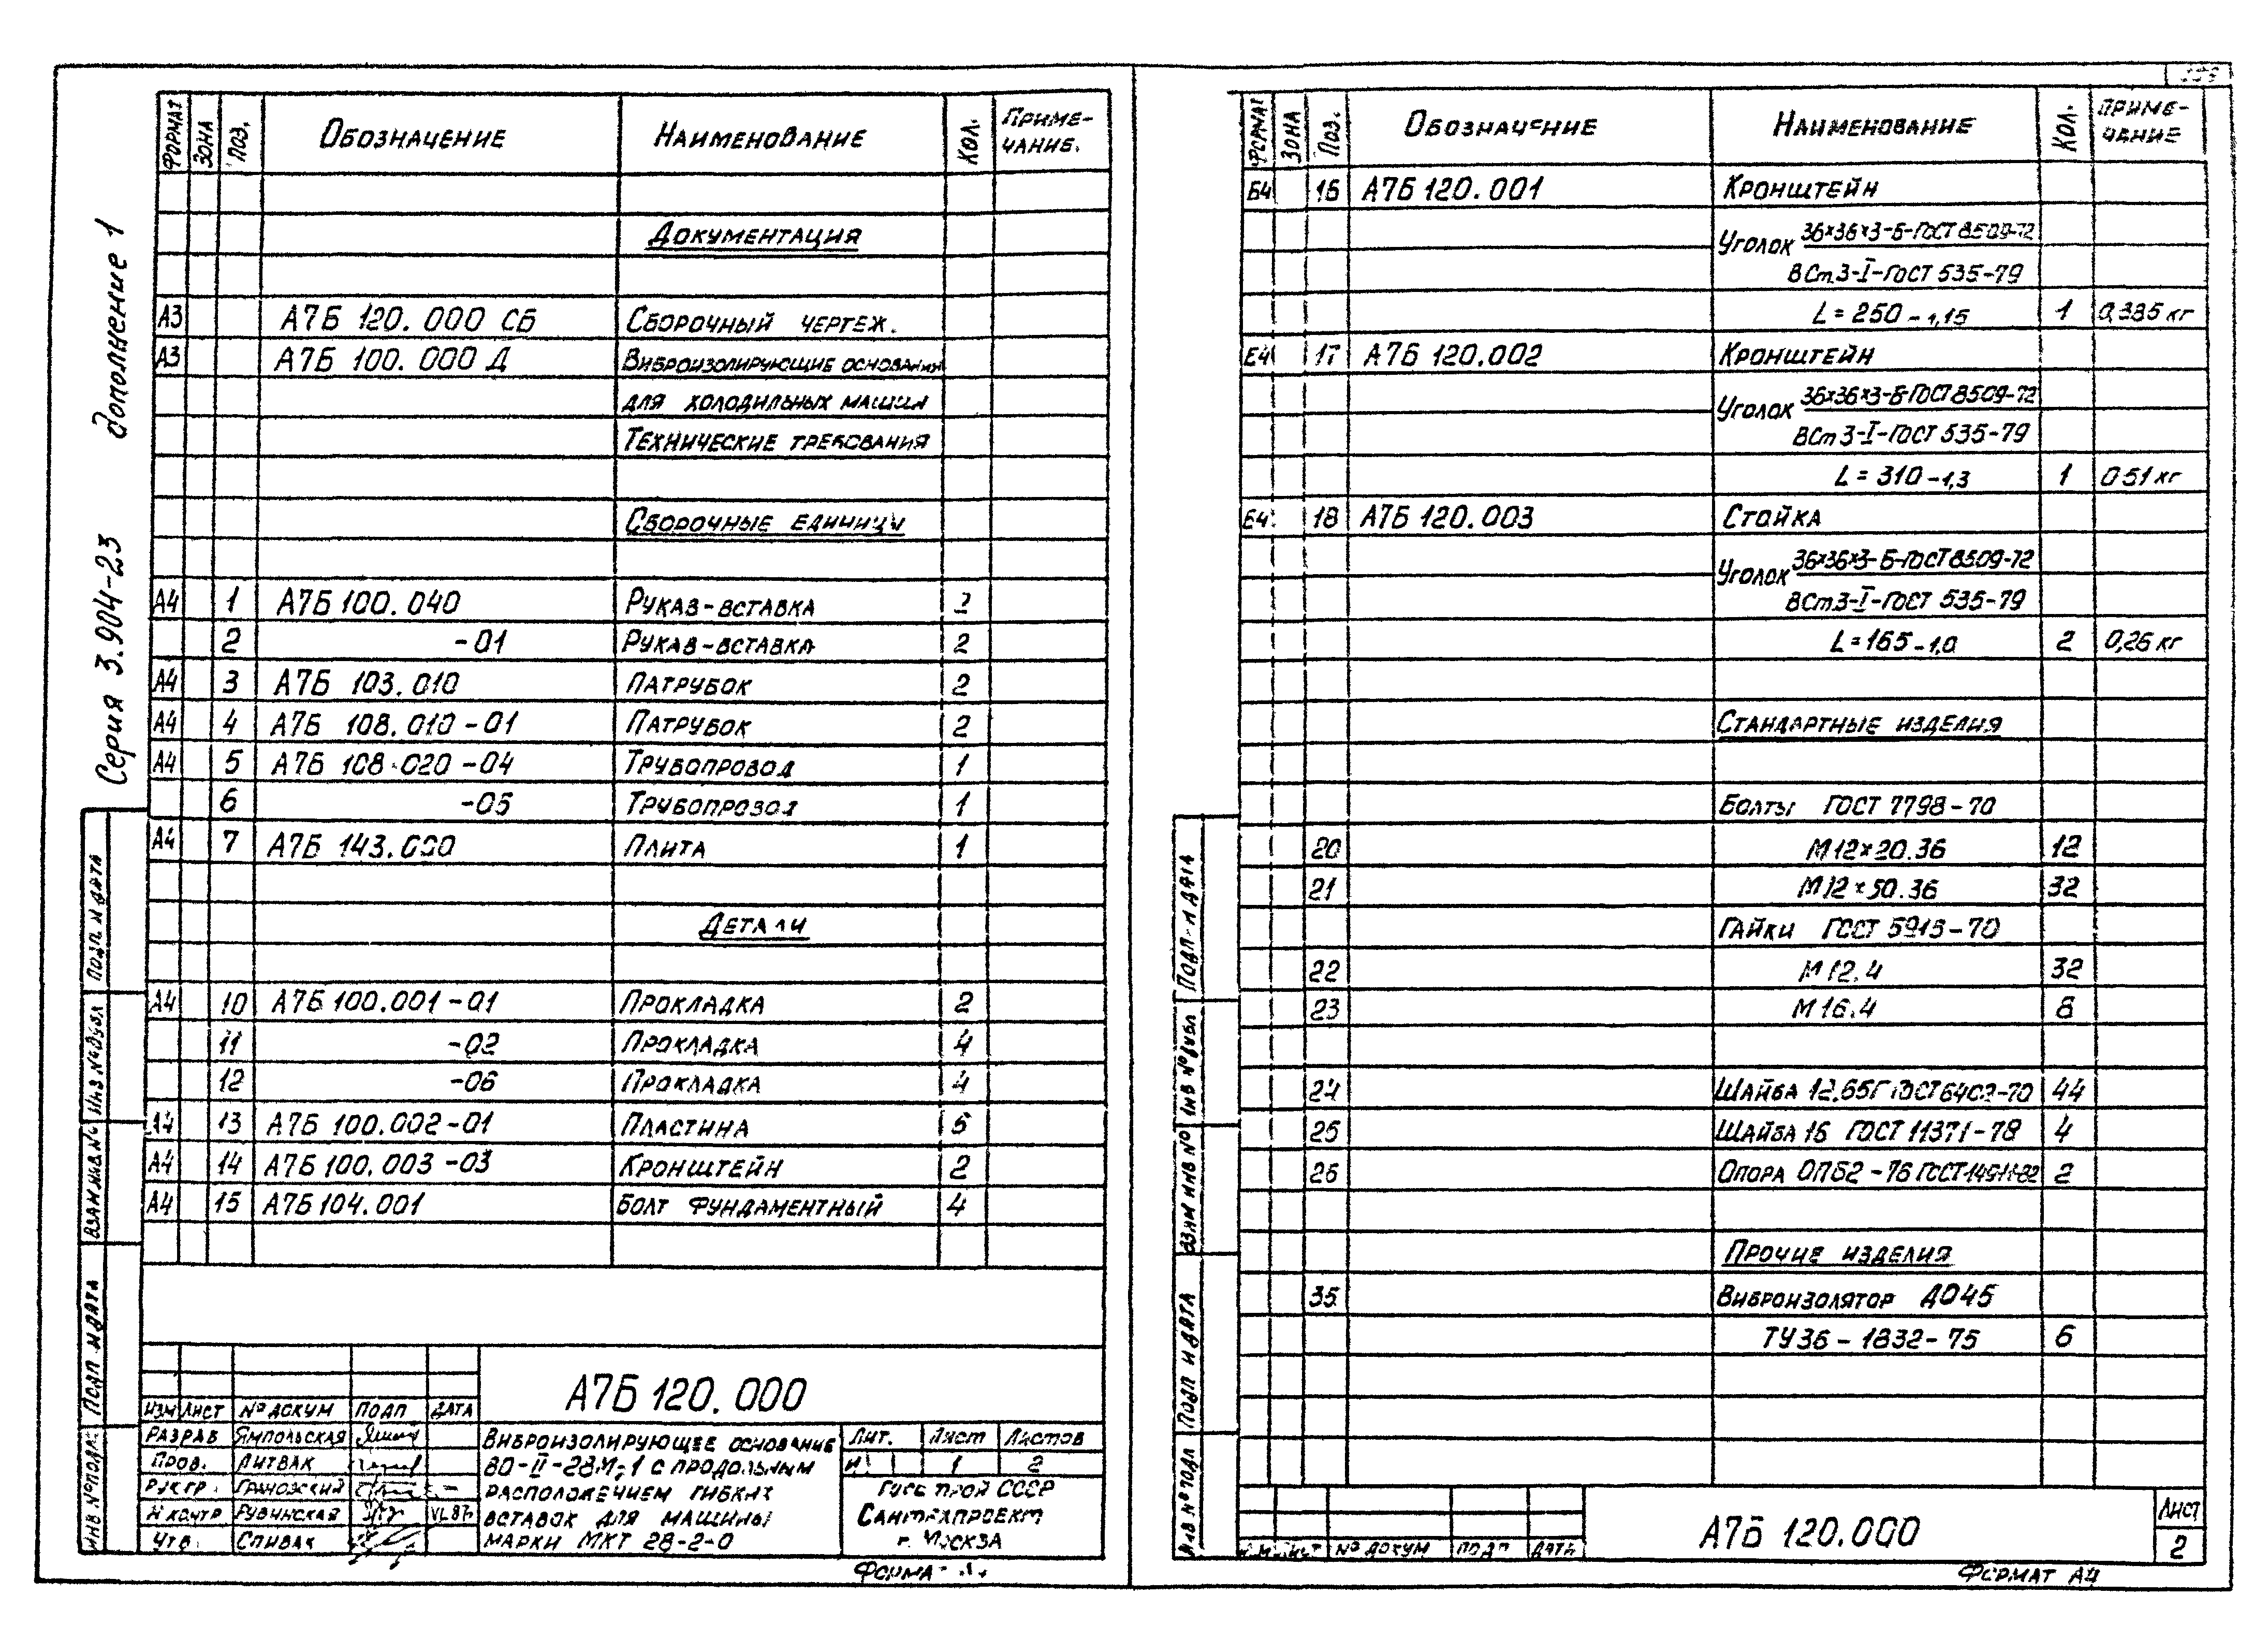 Серия 3.904-23 дополнение 1
ФОРМАТ ЗОНА ПОЗ. ОБОЗНАЧЕНИЕ НАИМЕНОВАНИЕ КОЛ. ПРИМЕ-
ЧАНИЕ.
ДОКУМЕНТАЦИЯ
А3 А7Б 120.000 СБ СБОРОЧНЫЙ ЧЕРТЕЖ.
А3 А7Б 100.000 Д ВИБРОИЗОЛИРУЮЩИЕ ОСНОВАНИЯ
ДЛЯ ХОЛОДИЛЬНЫХ МАШИН
ТЕХНИЧЕСКИЕ ТРЕБОВАНИЯ
СБОРОЧНЫЕ ЕДИНИЦЫ
А4 1 А7Б 100.040 РУКАВ-ВСТАВКА 2
2 -01 РУКАВ-ВСТАВКА 2
А4 3 А7Б 103.010 ПАТРУБОК 2
А4 4 А7Б 108.010-01 ПАТРУБОК 2
А4 5 А7Б 108.020-04 ТРУБОПРОВОД 1
6 -05 ТРУБОПРОВОД 1
А4 7 А7Б 143.000 ПЛИТА 1
ДЕТАЛИ
А4 10 А7Б 100.001-01 ПРОКЛАДКА 2
11 -02 ПРОКЛАДКА 4
12 -06 ПРОКЛАДКА 4
А4 13 А7Б 100.002-01 ПЛАСТИНА 6
А4 14 А7Б 100.003-03 КРОНШТЕЙН 2
А4 15 А7Б 104.001 БОЛТ ФУНДАМЕНТНЫЙ 4
ИНВ № ПОДЛ. ПОДП И ДАТА ВЗАМ ИНВ. № ИНВ № ДУБЛ ПОДП. И ДАТА
А7Б 120.000
ИЗМ ЛИСТ № ДОКУМ ПОДП ДАТА
РАЗРАБ ЯМПОЛЬСКАЯ
ПРОВ. ЛИТВАК
РУК ГР. ГРАНОВСКИЙ
Н КОНТР РУБИНСКАЯ VI.87г
УТВ. СПИВАК
ВИБРОИЗОЛИРУЮЩЕЕ ОСНОВАНИЕ
ВО-II-28М-1 С ПРОДОЛЬНЫМ
РАСПОЛОЖЕНИЕМ ГИБКИХ
ВСТАВОК ДЛЯ МАШИНЫ
МАРКИ МКТ 28-2-0
ЛИТ. ЛИСТ ЛИСТОВ
И 1 2
ГОССТРОЙ СССР
САНТЕХПРОЕКТ
г. МОСКВА
ФОРМАТ
ФОРМАТ ЗОНА ПОЗ. ОБОЗНАЧЕНИЕ НАИМЕНОВАНИЕ КОЛ. ПРИМЕ-
ЧАНИЕ
Б4 16 А7Б 120.001 КРОНШТЕЙН
УГОЛОК 36×36×3-Б-ГОСТ 8509-72
ВСт3-I-ГОСТ 535-79
L=250-1,15 1 0,385 кг
Б4 17 А7Б 120.002 КРОНШТЕЙН
УГОЛОК 36×36×3-Б-ГОСТ 8509-72
ВСт3-I-ГОСТ 535-79
L=310-1,3 1 0,51 кг
Б4 18 А7Б 120.003 СТОЙКА
УГОЛОК 36×36×3-Б-ГОСТ 8509-72
ВСт3-I-ГОСТ 535-79
L=165-1,0 2 0,26 кг
СТАНДАРТНЫЕ ИЗДЕЛИЯ
БОЛТЫ ГОСТ 7798-70
20 М12×20.36 12
21 М12×50.36 32
ГАЙКИ ГОСТ 5915-70
22 М12.4 32
23 М16.4 8
24 ШАЙБА 12.65Г ГОСТ 6402-70 44
25 ШАЙБА 16 ГОСТ 11371-78 4
26 ОПОРА ОПБ2-76 ГОСТ 14911-82 2
ПРОЧИЕ ИЗДЕЛИЯ
35 ВИБРОИЗОЛЯТОР ДО45
ТУ36-1832-75 6
ИНВ № ПОДЛ ПОДП И ДАТА ВЗАМ ИНВ № ИНВ № ДУБЛ ПОДП И ДАТА
ИЗМ ЛИСТ № ДОКУМ ПОДП ДАТА
А7Б 120.000
ЛИСТ
2
ФОРМАТ А4